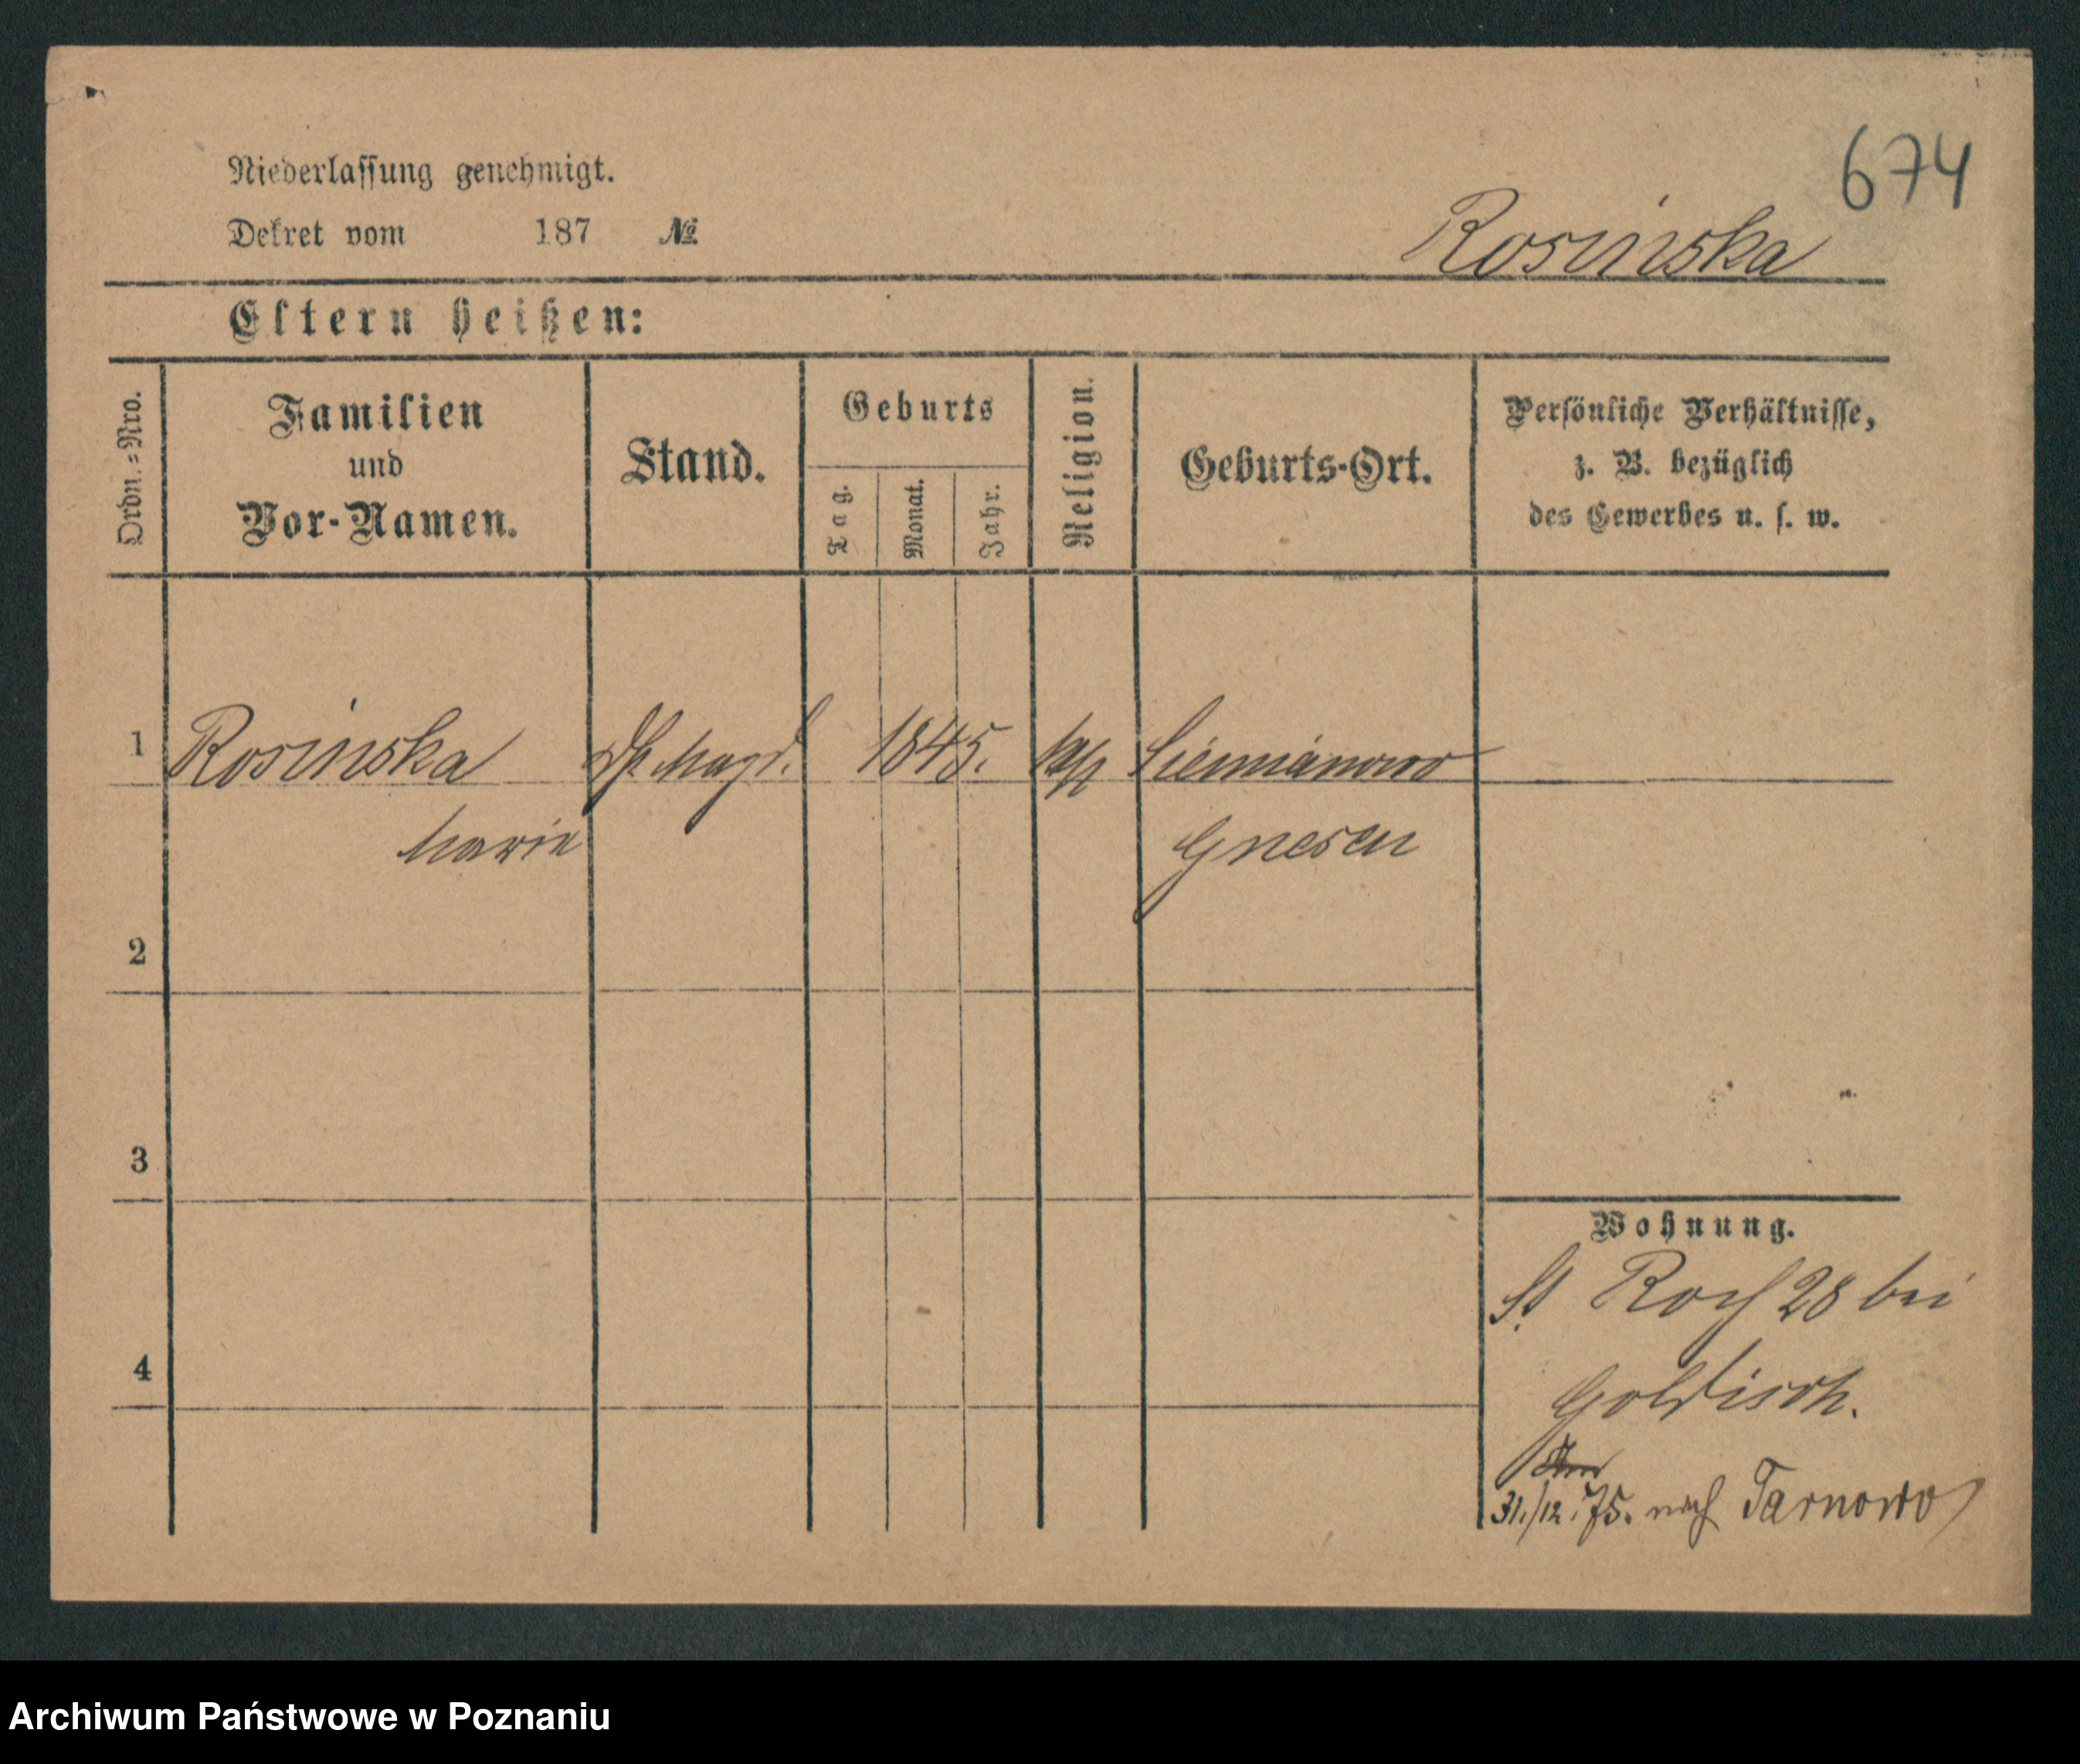 674
Niederlassung genehmigt.
Dekret vom 187 №
Rosińska
Eltern heißen:
Ordn.=Nro.
Familien
und
Vor-Namen.
Stand.
Geburts
Tag.
Monat.
Jahr.
Religion.
Geburts-Ort.
Persönliche Verhältnisse,
z. B. bezüglich
des Gewerbes u. s. w.
1 Rosińska Magd. 1845. kath Siemianowo
Marie Gnesen
2
3
4
Wohnung.
St. Roch 28 bei
Goldisch.
31./12. 75. nach Tarnowo
Archiwum Państwowe w Poznaniu